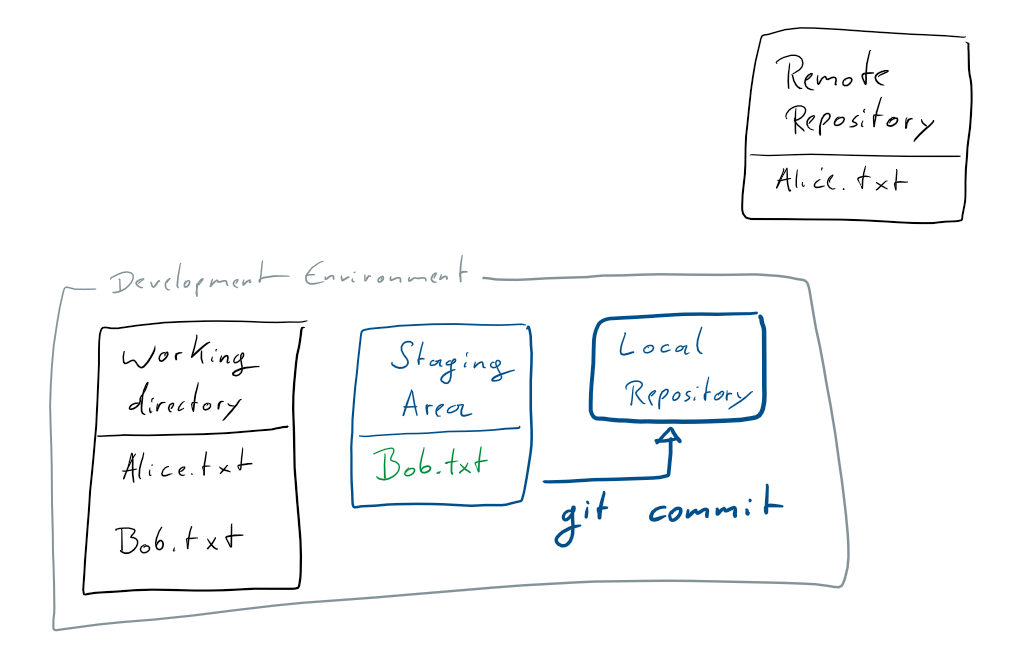 Remote
Repository
Alice.txt
Development Environment
Working
directory
Alice.txt
Bob.txt
Staging
Area
Bob.txt
Local
Repository
git commit